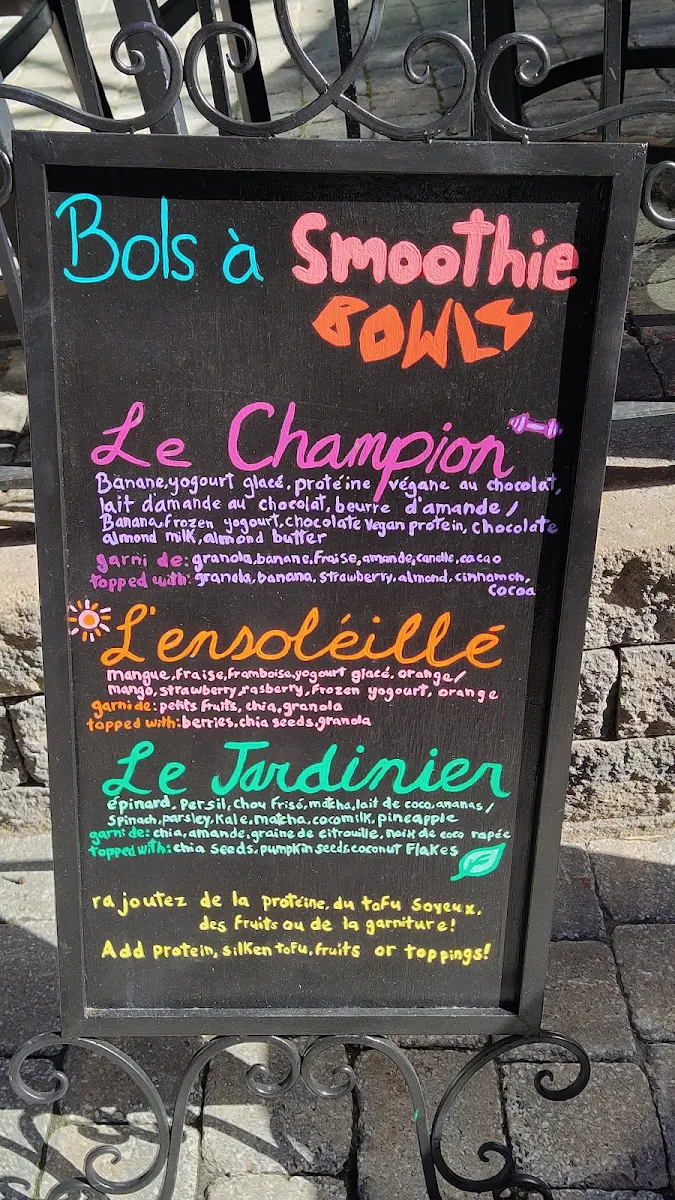 Bols à Smoothie
BOWLS
Le Champion
Banane, yogourt glacé, protéine végane au chocolat,
lait d'amande au chocolat, beurre d'amande /
Banana, frozen yogourt, chocolate vegan protein, chocolate
almond milk, almond butter
garni de: granola, banane, fraise, amande, canelle, cacao
topped with: granola, banana, strawberry, almond, cinnamon,
cocoa
L'ensoléillé
mangue, fraise, framboise, yogourt glacé, orange/
mango, strawberry, rasberry, frozen yogourt, orange
garni de: petits fruits, chia, granola
topped with: berries, chia seeds, granola
Le Jardinier
épinard, persil, chou frisé, matcha, lait de coco, ananas/
spinach, parsley, kale, matcha, cocomilk, pineapple
garni de: chia, amande, graine de citrouille, noix de coco rapée
topped with: chia seeds, pumpkin seeds, coconut flakes
rajoutez de la protéine, du tofu soyeux,
des fruits ou de la garniture!
Add protein, silken tofu, fruits or toppings!